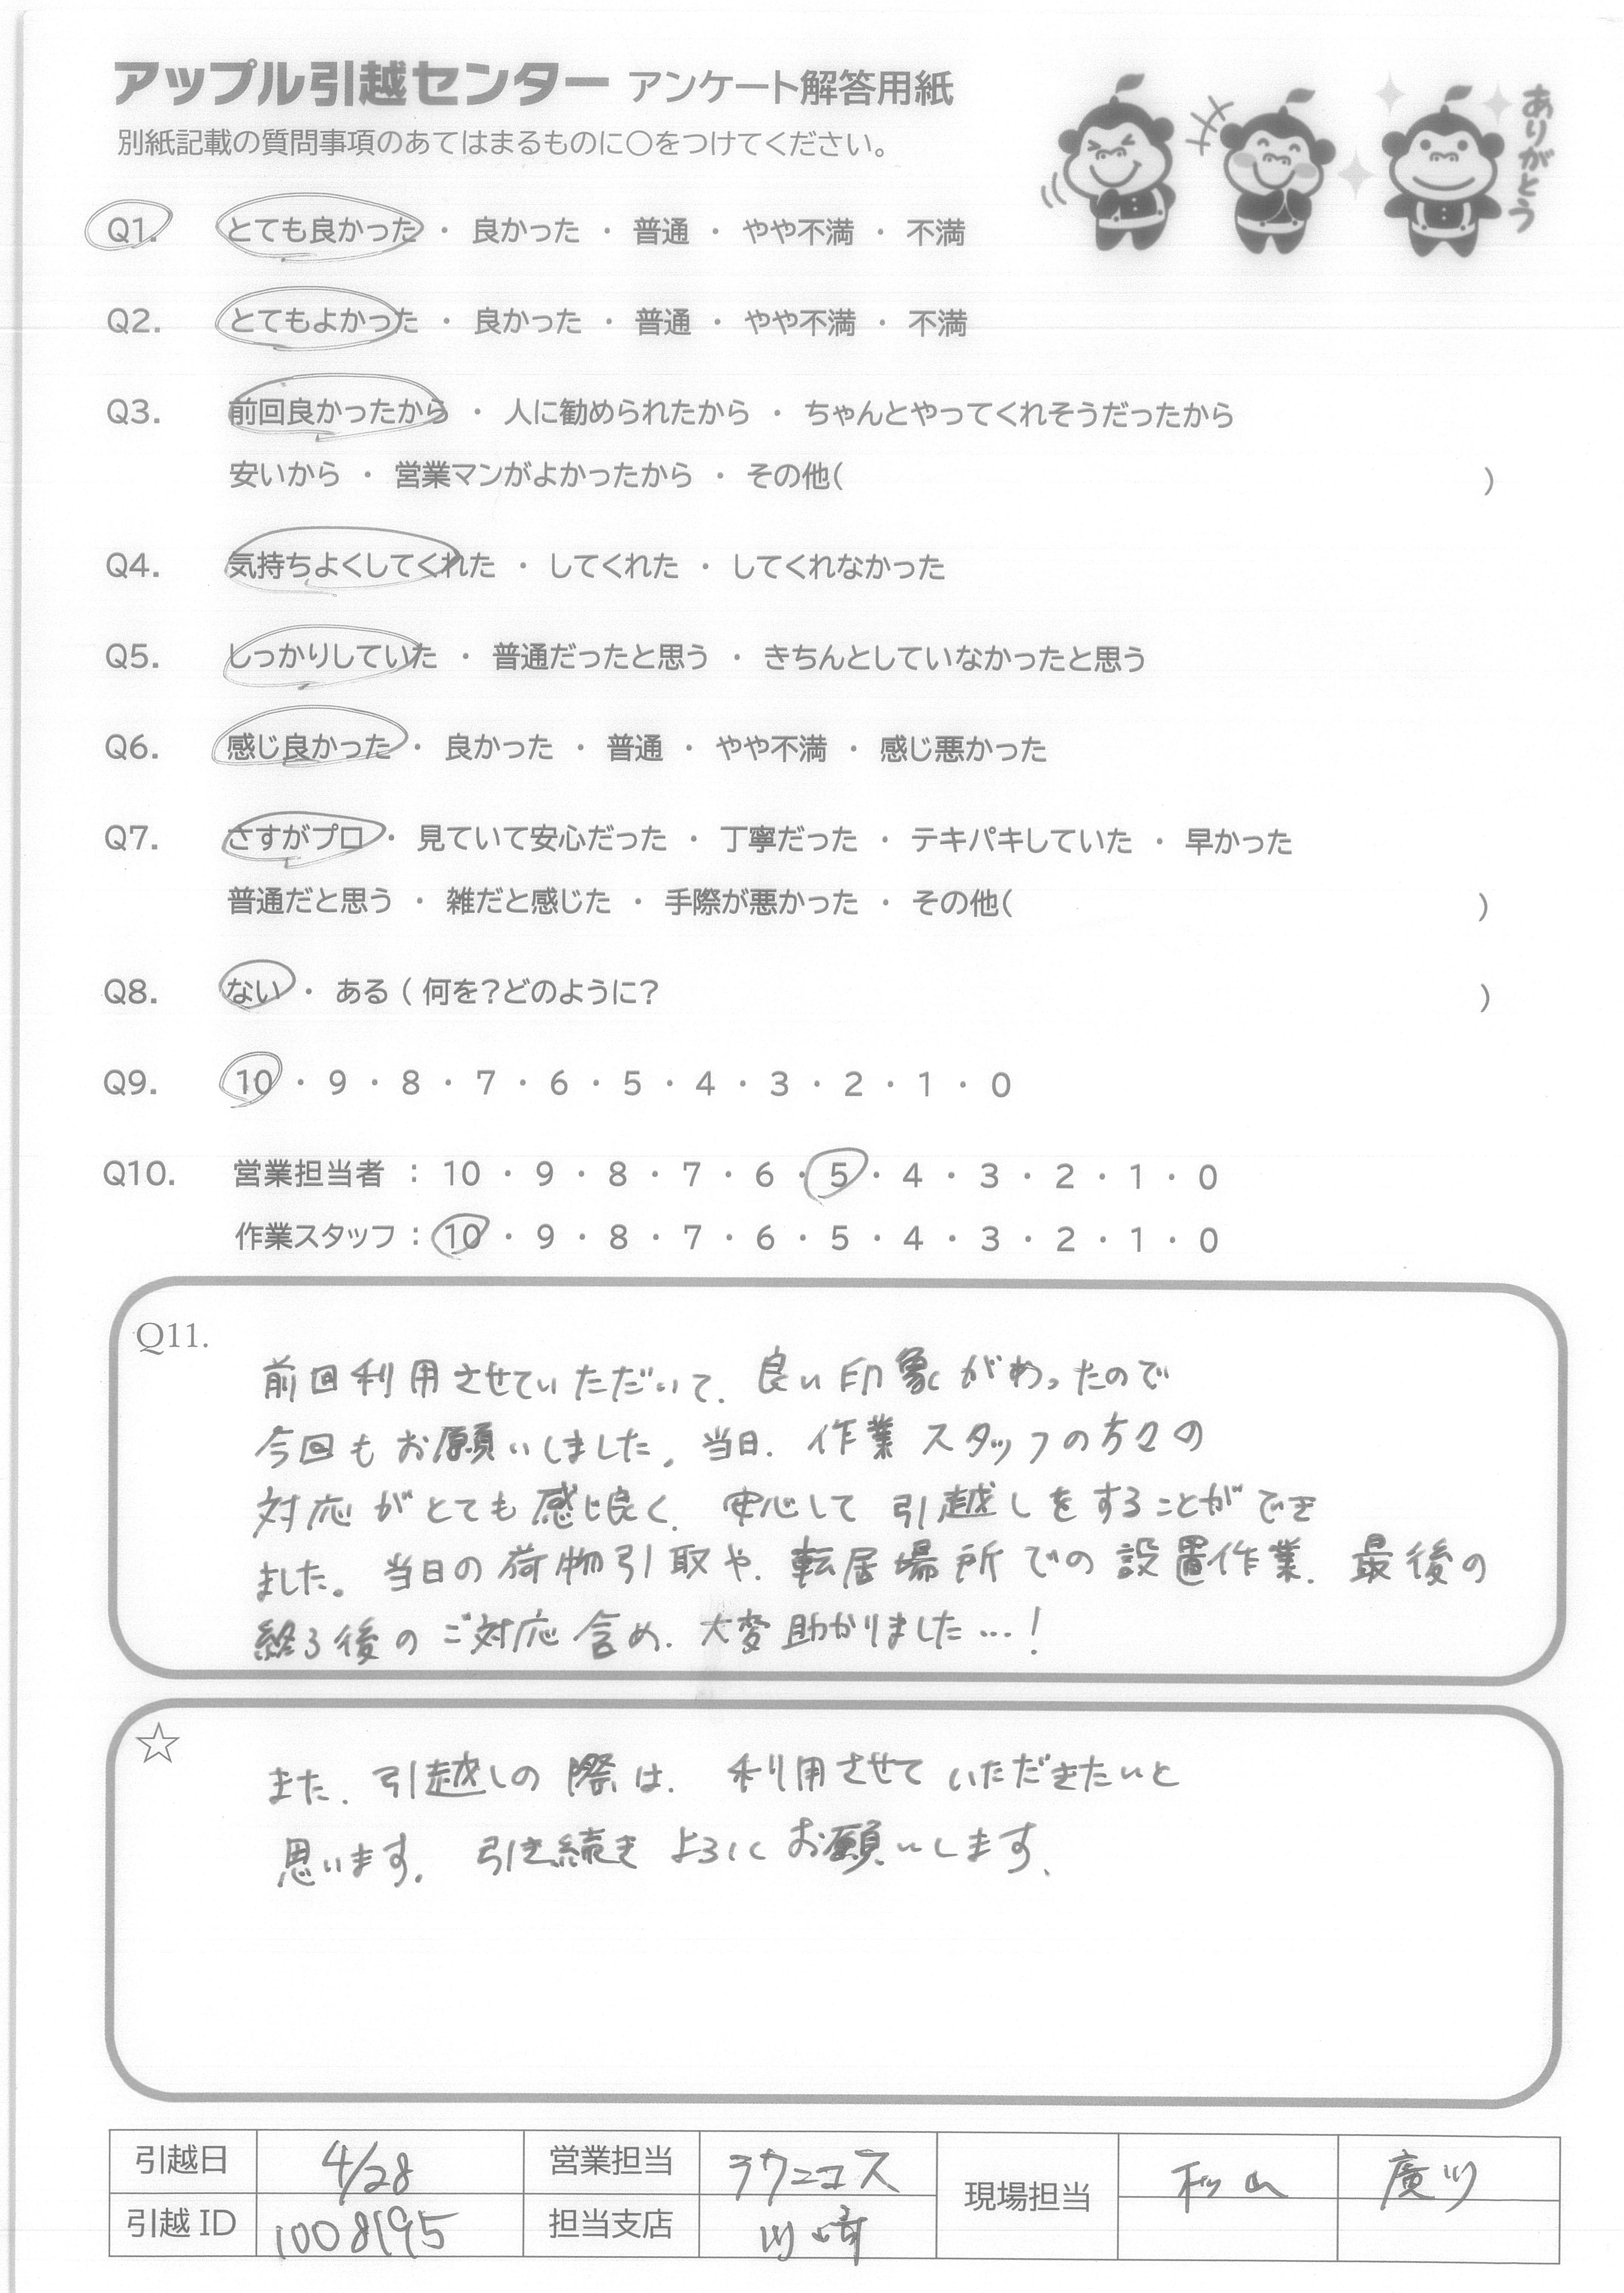 アップル引越センター アンケート解答用紙
別紙記載の質問事項のあてはまるものに○をつけてください。
ありがとう
Q1. とても良かった ・ 良かった ・ 普通 ・ やや不満 ・ 不満
Q2. とてもよかった ・ 良かった ・ 普通 ・ やや不満 ・ 不満
Q3. 前回良かったから ・ 人に勧められたから ・ ちゃんとやってくれそうだったから
安いから ・ 営業マンがよかったから ・ その他( )
Q4. 気持ちよくしてくれた ・ してくれた ・ してくれなかった
Q5. しっかりしていた ・ 普通だったと思う ・ きちんとしていなかったと思う
Q6. 感じ良かった ・ 良かった ・ 普通 ・ やや不満 ・ 感じ悪かった
Q7. さすがプロ ・ 見ていて安心だった ・ 丁寧だった ・ テキパキしていた ・ 早かった
普通だと思う ・ 雑だと感じた ・ 手際が悪かった ・ その他( )
Q8. ない ・ ある ( 何を?どのように? )
Q9. 10 ・ 9 ・ 8 ・ 7 ・ 6 ・ 5 ・ 4 ・ 3 ・ 2 ・ 1 ・ 0
Q10. 営業担当者 : 10 ・ 9 ・ 8 ・ 7 ・ 6 ・ 5 ・ 4 ・ 3 ・ 2 ・ 1 ・ 0
作業スタッフ : 10 ・ 9 ・ 8 ・ 7 ・ 6 ・ 5 ・ 4 ・ 3 ・ 2 ・ 1 ・ 0
Q11.
前回利用させていただいて、良い印象があったので
今回もお願いしました。当日、作業スタッフの方々の
対応がとても感じ良く、安心して引越しをすることができ
ました。当日の荷物引取や、転居場所での設置作業、最後の
終る後のご対応含め、大変助かりました…!
☆
また、引越しの際は、利用させていただきたいと
思います。引き続きよろしくお願いします、
引越日 4/28 営業担当 ラウニコス 現場担当 松山 廣川
引越 ID 1008195 担当支店 川崎